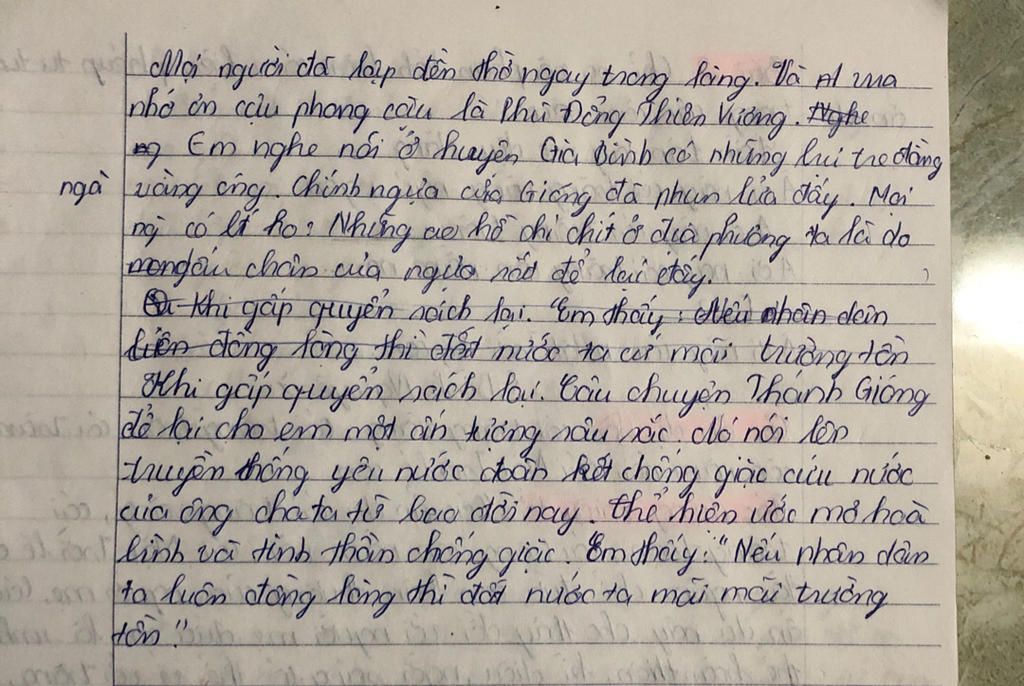 Mọi người đã lập đền thờ ngay trong làng. Và vua
nhớ ơn cậu phong cậu là Phù Đổng Thiên Vương. Nghe
Em nghe nói ở huyện Gia Bình có những lũi tre đằng
ngà vàng óng. Chính ngựa của Gióng đã phun lửa đấy. Mọi
có lí ho: Những ao hồ chi chít ở địa phương ta là do
dấu chân của ngựa sắt để lại đấy.
Khi gấp quyển sách lại. Em thấy: Nếu nhân dân
đồng lòng thì đất nước ta cứ mãi trường tồn
Khi gấp quyển sách lại. Câu chuyện Thánh Gióng
để lại cho em một ấn tượng sâu sắc. Nó nói lên
truyền thống yêu nước đoàn kết chống giặc cứu nước
của ông cha ta từ bao đời nay. thể hiện ước mơ hoà
bình và tinh thần chống giặc. Em thấy: "Nếu nhân dân
ta luôn đồng lòng thì đất nước ta mãi mãi trường
tồn."